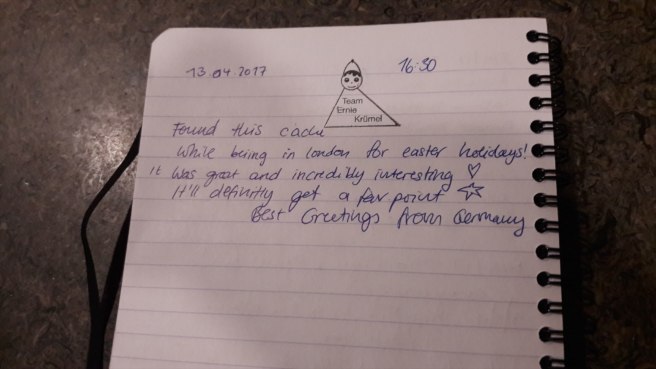 13.04.2017
16:30
Team
Ernie
Krümel
Found this cache
while being in london for easter holidays!
It was great and incredibly interesting ♡
It'll definitly get a fav point ☆
Best Greetings from Germany